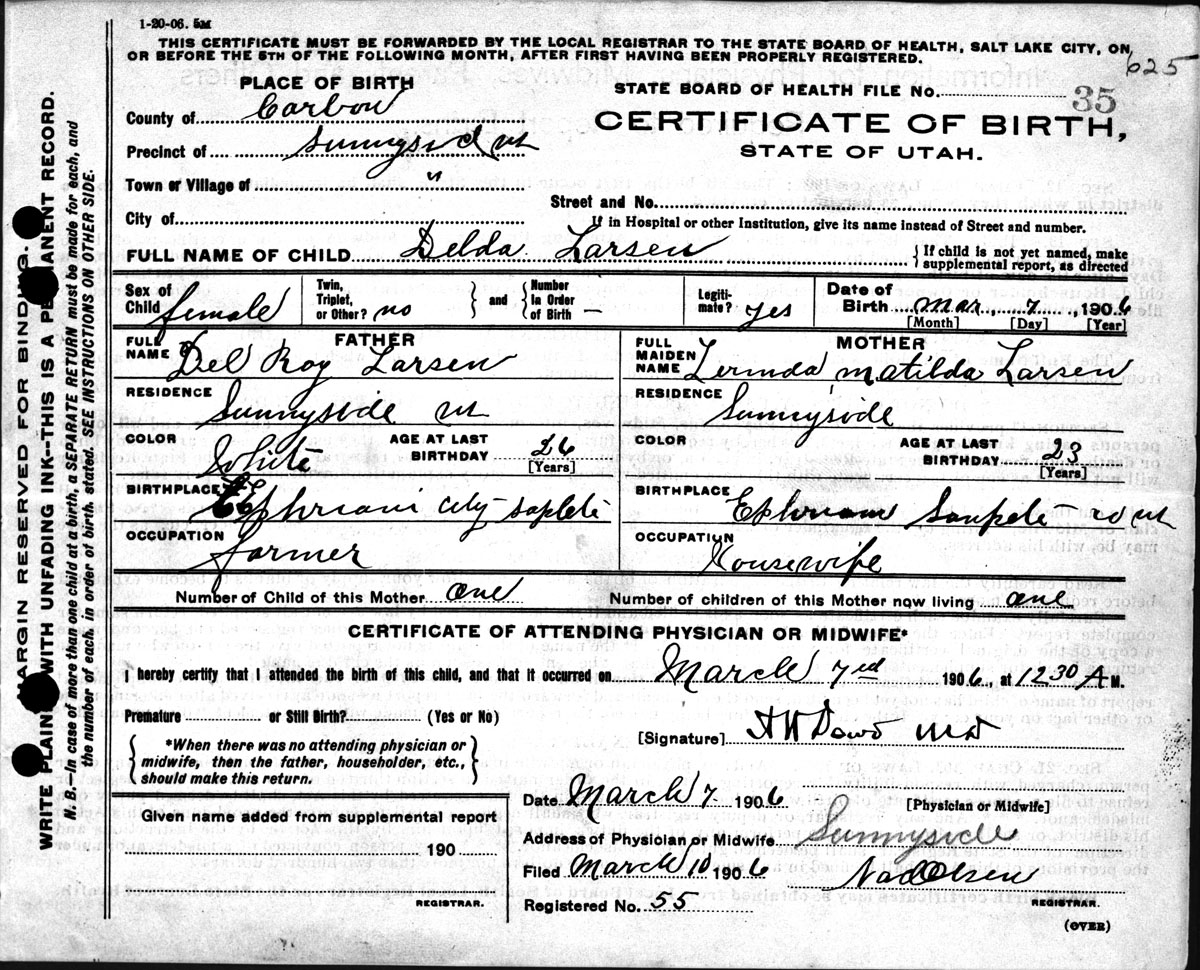 1-20-06. 5M
THIS CERTIFICATE MUST BE FORWARDED BY THE LOCAL REGISTRAR TO THE STATE BOARD OF HEALTH, SALT LAKE CITY, ON
OR BEFORE THE 5TH OF THE FOLLOWING MONTH, AFTER FIRST HAVING BEEN PROPERLY REGISTERED.
625
PLACE OF BIRTH
County of Carbon
Precinct of Sunnysid ut
Town or Village of "
City of
STATE BOARD OF HEALTH FILE No. 35
CERTIFICATE OF BIRTH,
STATE OF UTAH.
Street and No.
If in Hospital or other Institution, give its name instead of Street and number.
FULL NAME OF CHILD Delda Larsen
If child is not yet named, make
supplemental report, as directed
Sex of Child female
Twin, Triplet, or Other? no
and
Number In Order of Birth —
Legiti- mate? yes
Date of Birth Mar 7, 1906
[Month] [Day] [Year]
FATHER
FULL NAME Del Roy Larsen
RESIDENCE Sunnyside ut
COLOR White
AGE AT LAST BIRTHDAY 26
[Years]
BIRTHPLACE Ephriam city saplete
OCCUPATION farmer
MOTHER
FULL MAIDEN NAME Matilda Larsen
RESIDENCE Sunnyside
COLOR "
AGE AT LAST BIRTHDAY 23
[Years]
BIRTHPLACE Ephriam Sanpete co ut
OCCUPATION Housewife
Number of Child of this Mother one
Number of children of this Mother now living one
CERTIFICATE OF ATTENDING PHYSICIAN OR MIDWIFE*
I hereby certify that I attended the birth of this child, and that it occurred on March 7rd 1906, at 12 30 A M.
Premature or Still Birth? (Yes or No)
*When there was no attending physician or
midwife, then the father, householder, etc.,
should make this return.
[Signature] A W Dowd MD
[Physician or Midwife]
Date March 7 1906
Address of Physician or Midwife Sunnyside
Filed March 10 1906
REGISTRAR.
Registered No. 55
Given name added from supplemental report
190
REGISTRAR.
(OVER)
MARGIN RESERVED FOR BINDING.
WRITE PLAINLY WITH UNFADING INK--THIS IS A PERMANENT RECORD.
N. B.--In case of more than one child at a birth, a SEPARATE RETURN must be made for each, and
the number of each, in order of birth, stated. SEE INSTRUCTIONS ON OTHER SIDE.